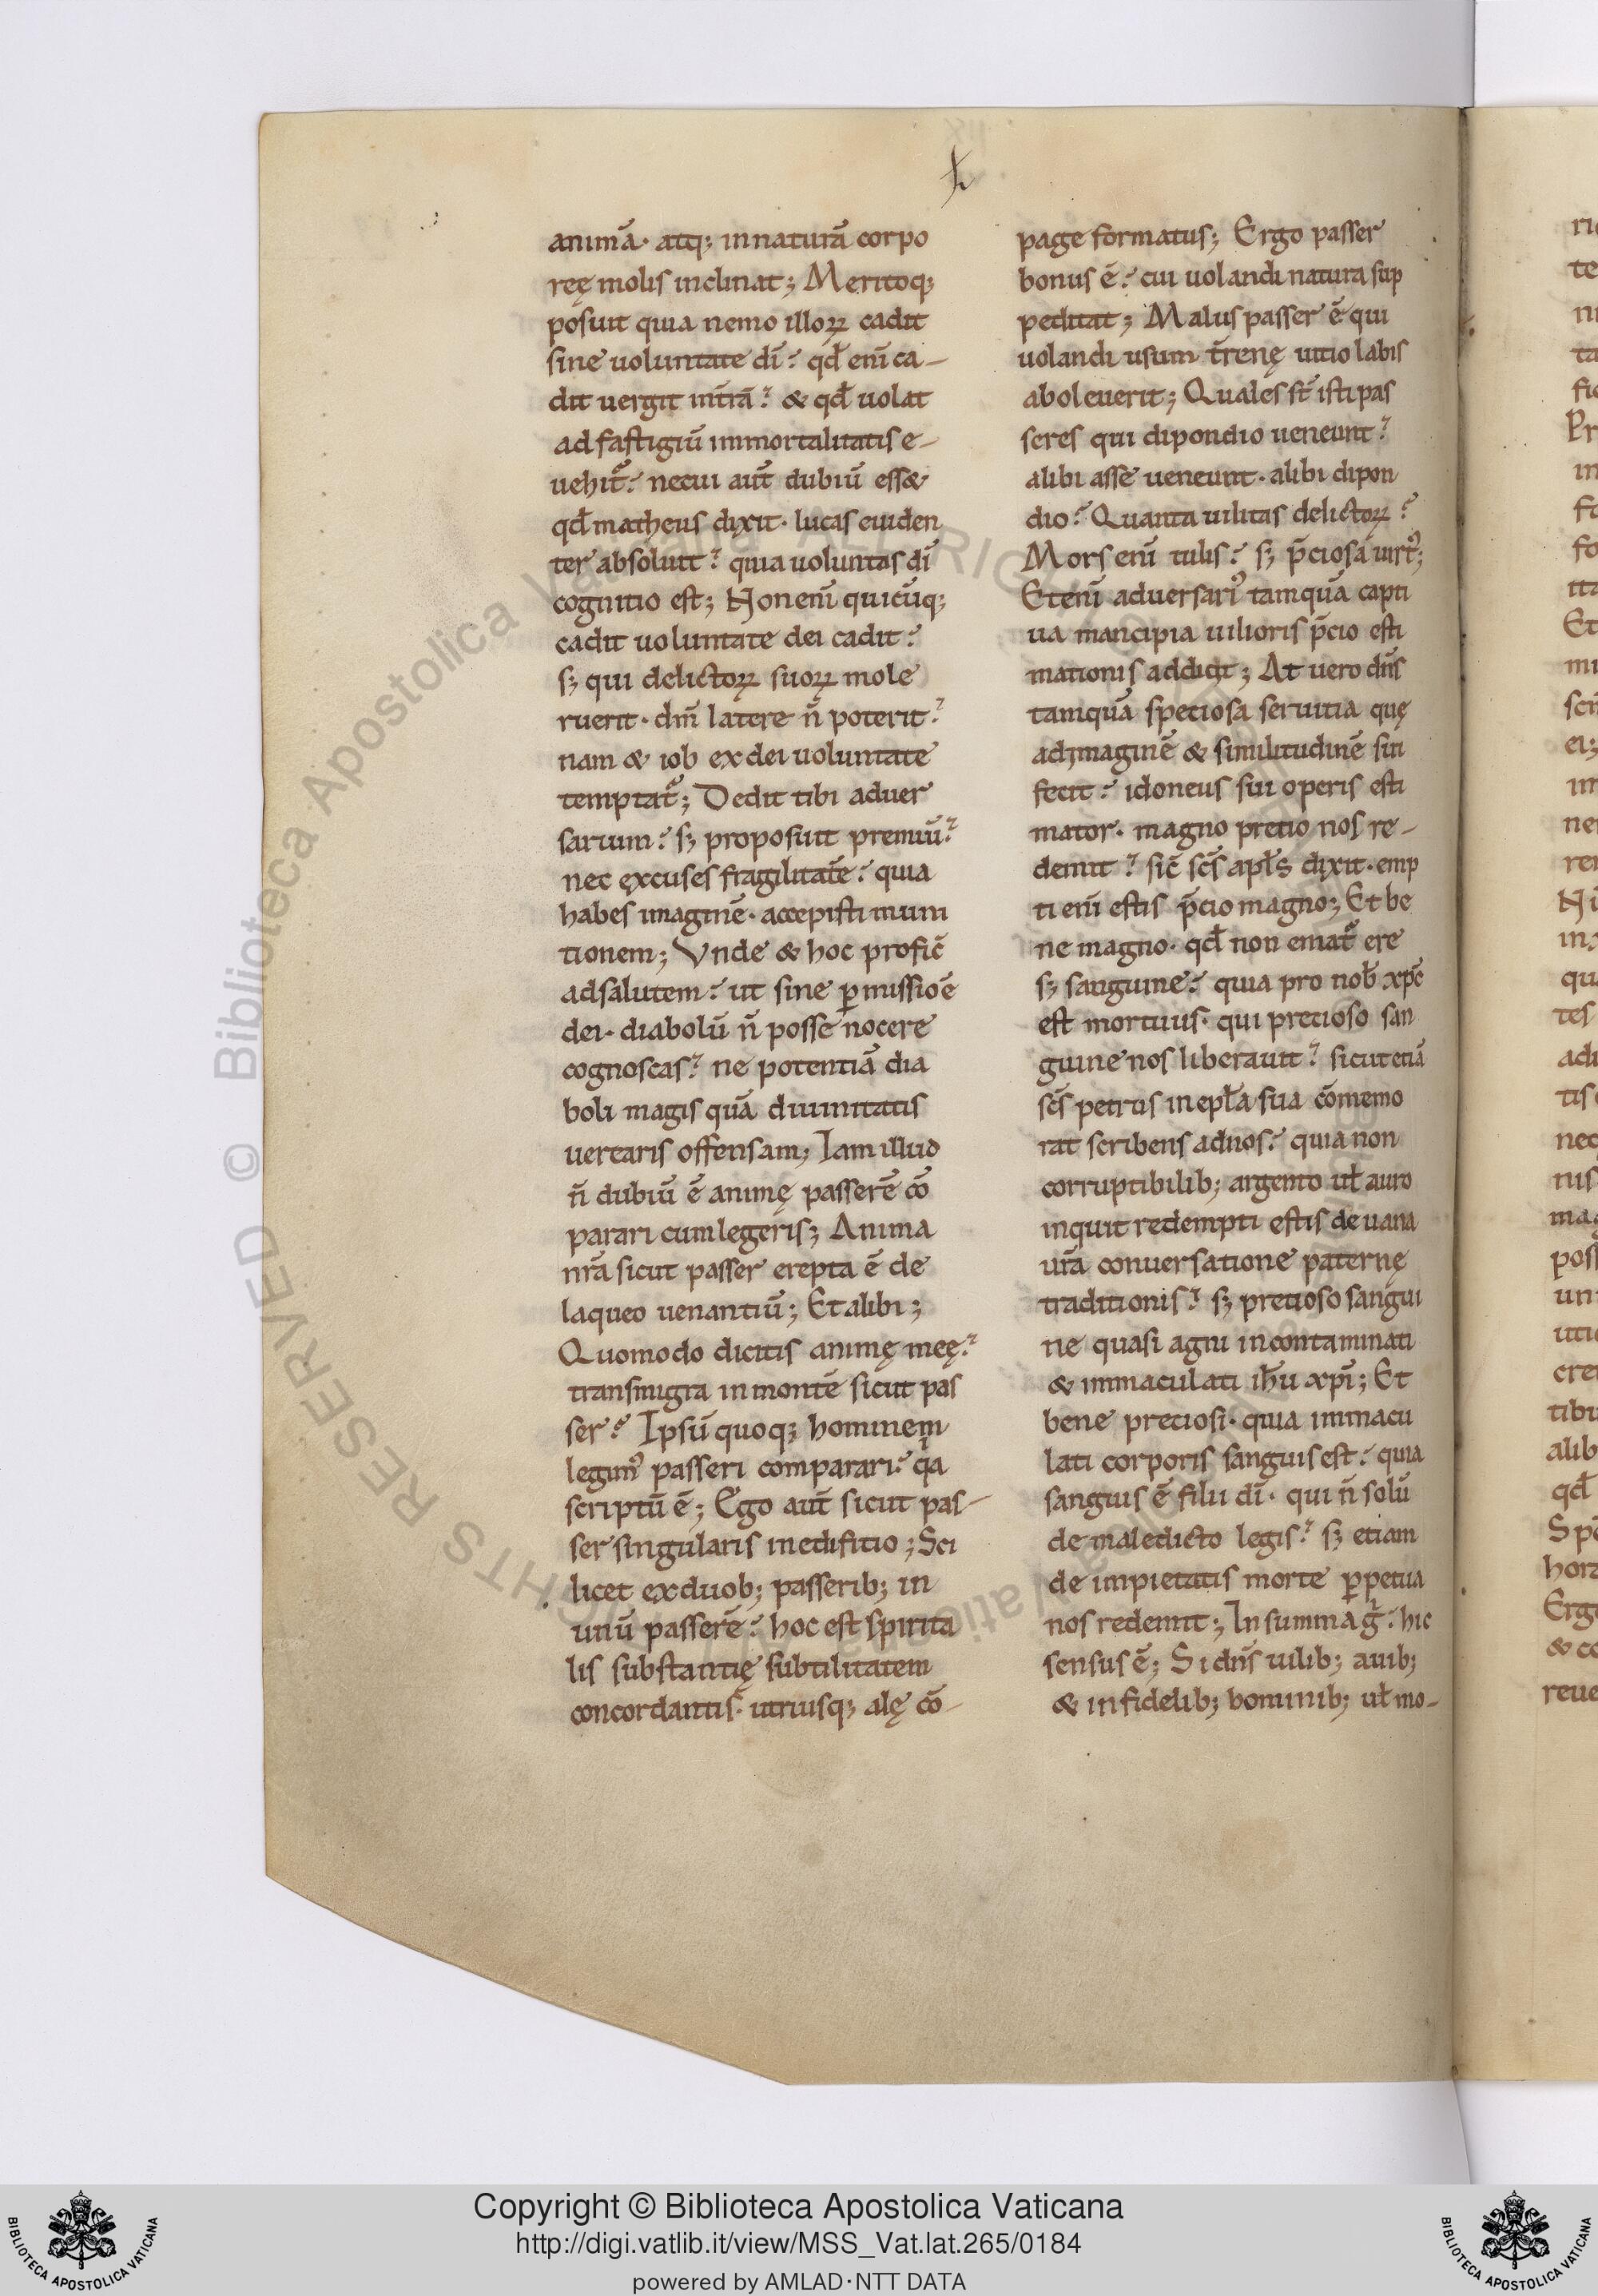 animā· atq; innaturā corpo
reę molis inclinat; Meritoq;
posuit quia nemo illoꝝ cadit
sine uoluntate dī? qđ enī ca-
dit uergit intrā? & qđ uolat
ad fastigiū immortalitatis e-
uehit᷑? necui aut̄ dubiū ess&
qđ matheus dixit· lucas euiden
ter absoluit? quia uoluntas dī
cognitio est; Non enī quicūq;
cadit uoluntate dei cadit?
sꝫ qui delictoꝝ suoꝝ mole
ruerit· dm̄ latere ñ poterit?
nam & iob ex dei uoluntate
temptat᷑; Dedit tibi aduer
sarium? sꝫ proposuit premiū?
nec excuses fragilitatē? quia
habes imaginē· accepisti muni
tionem; Vnde & hoc profic̄
adsalutem? ut sine ꝑmissioē
dei· diabolū ñ posse nocere
cognoscas? ne potentiā dia
boli magis quā diuinitatis
uertaris offensam; Iam illud
ñ dubiū ē animę passerē cō
parari cum legeris; Anima
nr̄a sicut passer erepta ē de
laqueo uenantiū; Et alibi;
Quomodo dicitis animę meę?
transmigra in montē sicut pas
ser? Ipsū quoq; hominem
legim᷒ passeri comparari? qa
scriptū ē; Ego aut̄ sicut pas-
ser singularis in edifitio; Sci
licet ex duob; passerib; in
unū passerē? hoc est spirita
lis substantię subtilitatem
concordantis· utriusq; alę cō-
page formatus; Ergo passer
bonus ē? cui uolandi natura sup
peditat; Malus passer ē qui
uolandi usum t̄renę uitio labis
aboleuerit; Quales st̄ isti pas
seres qui dipondio ueneunt?
alibi asse ueneunt· alibi dipon
dio? Quanta uilitas delictoꝝ?
Mors enī uilis? sꝫ p̄ciosa uirt᷒;
Etenī aduersari᷒ tamquā capti
ua mancipia uilioris p̄cio esti
mationis addicit; At uero dn̄s
tamquā speciosa seruitia quę
ad imaginē & similitudinē sui
fecit? idoneus sui operis esti
mator· magno pretio nos re-
demit? sic̄ sc̄s apl̄s dixit· emp
ti enī estis p̄cio magno; Et be
ne magno· qđ non emat᷑ ere
sꝫ sanguine? quia pro nob̄ xp̄c
est mortuus· qui precioso san
guine nos liberauit? sicut etiā
sc̄s petrus in epl̄a sua cōmemo
rat scribens ad nos? quia non
corruptibilib; argento ul̄ auro
inquit redempti estis de uana
ur̄a conuersatione paternę
traditionis? sꝫ precioso sangui
ne quasi agni incontaminati
& immaculati ih̄u xp̄i; Et
bene preciosi· quia immacu
lati corporis sanguis est? quia
sanguis ē filii dī· qui ñ solū
de maledicto legis? sꝫ etiam
de impietatis morte ꝑpetua
nos redemit; In summa g̊? hic
sensus ē; Si dn̄s uilib; auib;
& infidelib; hominib; ul̄ mo-
Copyright © Biblioteca Apostolica Vaticana
http://digi.vatlib.it/view/MSS_Vat.lat.265/0184
powered by AMLAD·NTT DATA
BIBLIOTECA APOSTOLICA VATICANA
BIBLIOTECA APOSTOLICA VATICANA
© Biblioteca Apostolica Vaticana ALL RIGHTS RESERVED